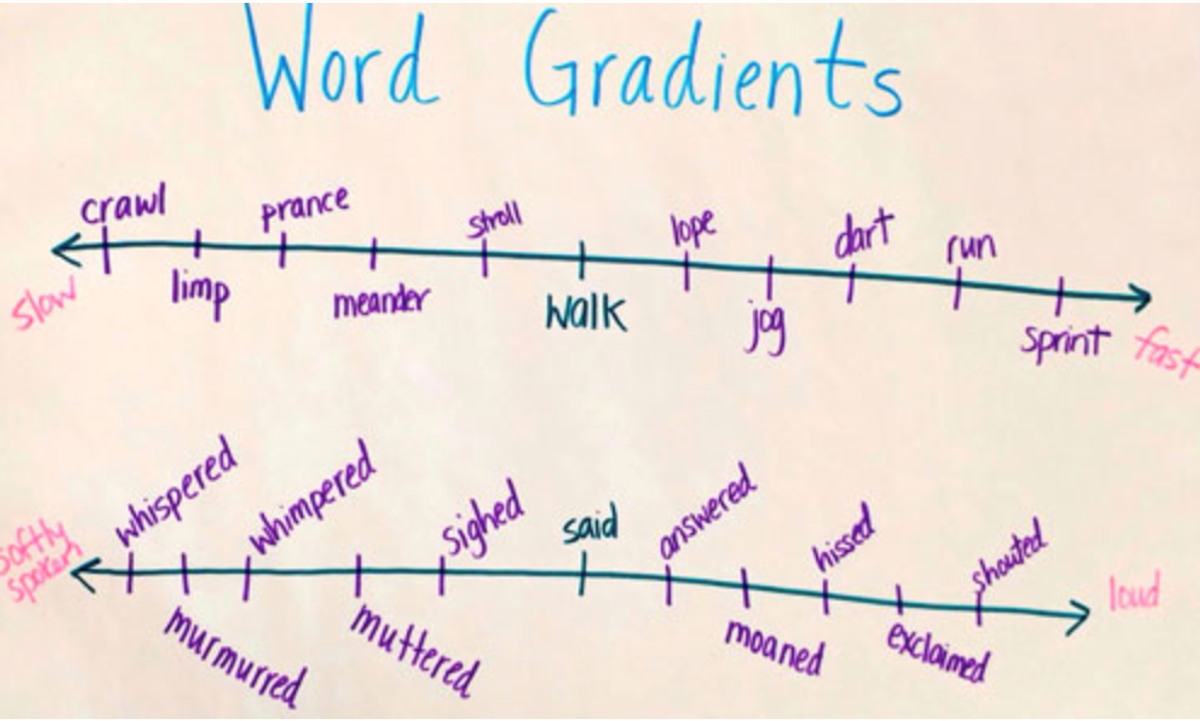 Word Gradients
crawl prance stroll lope dart run
limp meander walk jog sprint
slow fast
whispered whimpered sighed said answered hissed shouted
softly
spoken loud
murmurred muttered moaned exclaimed